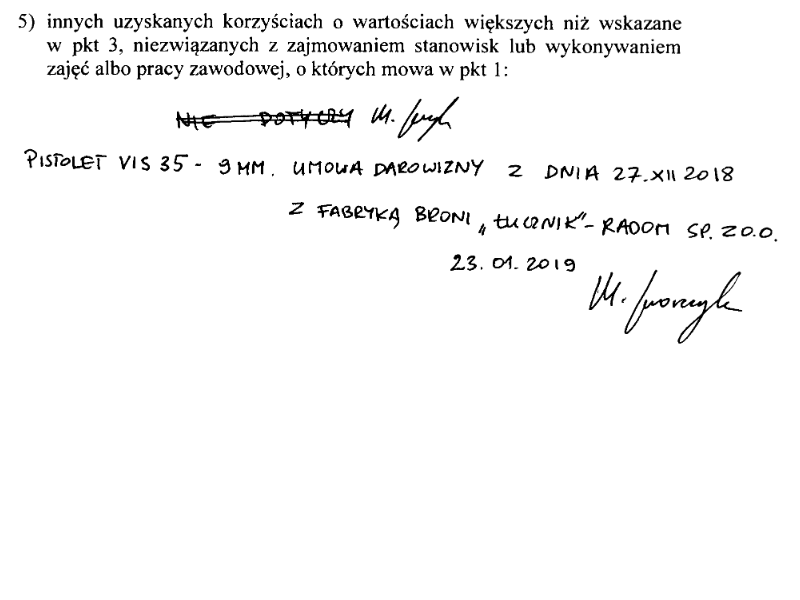 5) innych uzyskanych korzyściach o wartościach większych niż wskazane
w pkt 3, niezwiązanych z zajmowaniem stanowisk lub wykonywaniem
zajęć albo pracy zawodowej, o których mowa w pkt 1:
NIE DOTYCZY M.
PISTOLET VIS 35 - 9 MM. UMOWA DAROWIZNY Z DNIA 27.XII 2018
Z FABRYKĄ BRONI „ŁUCZNIK” - RADOM SP. Z O.O.
23.01.2019
M. Dworczyk